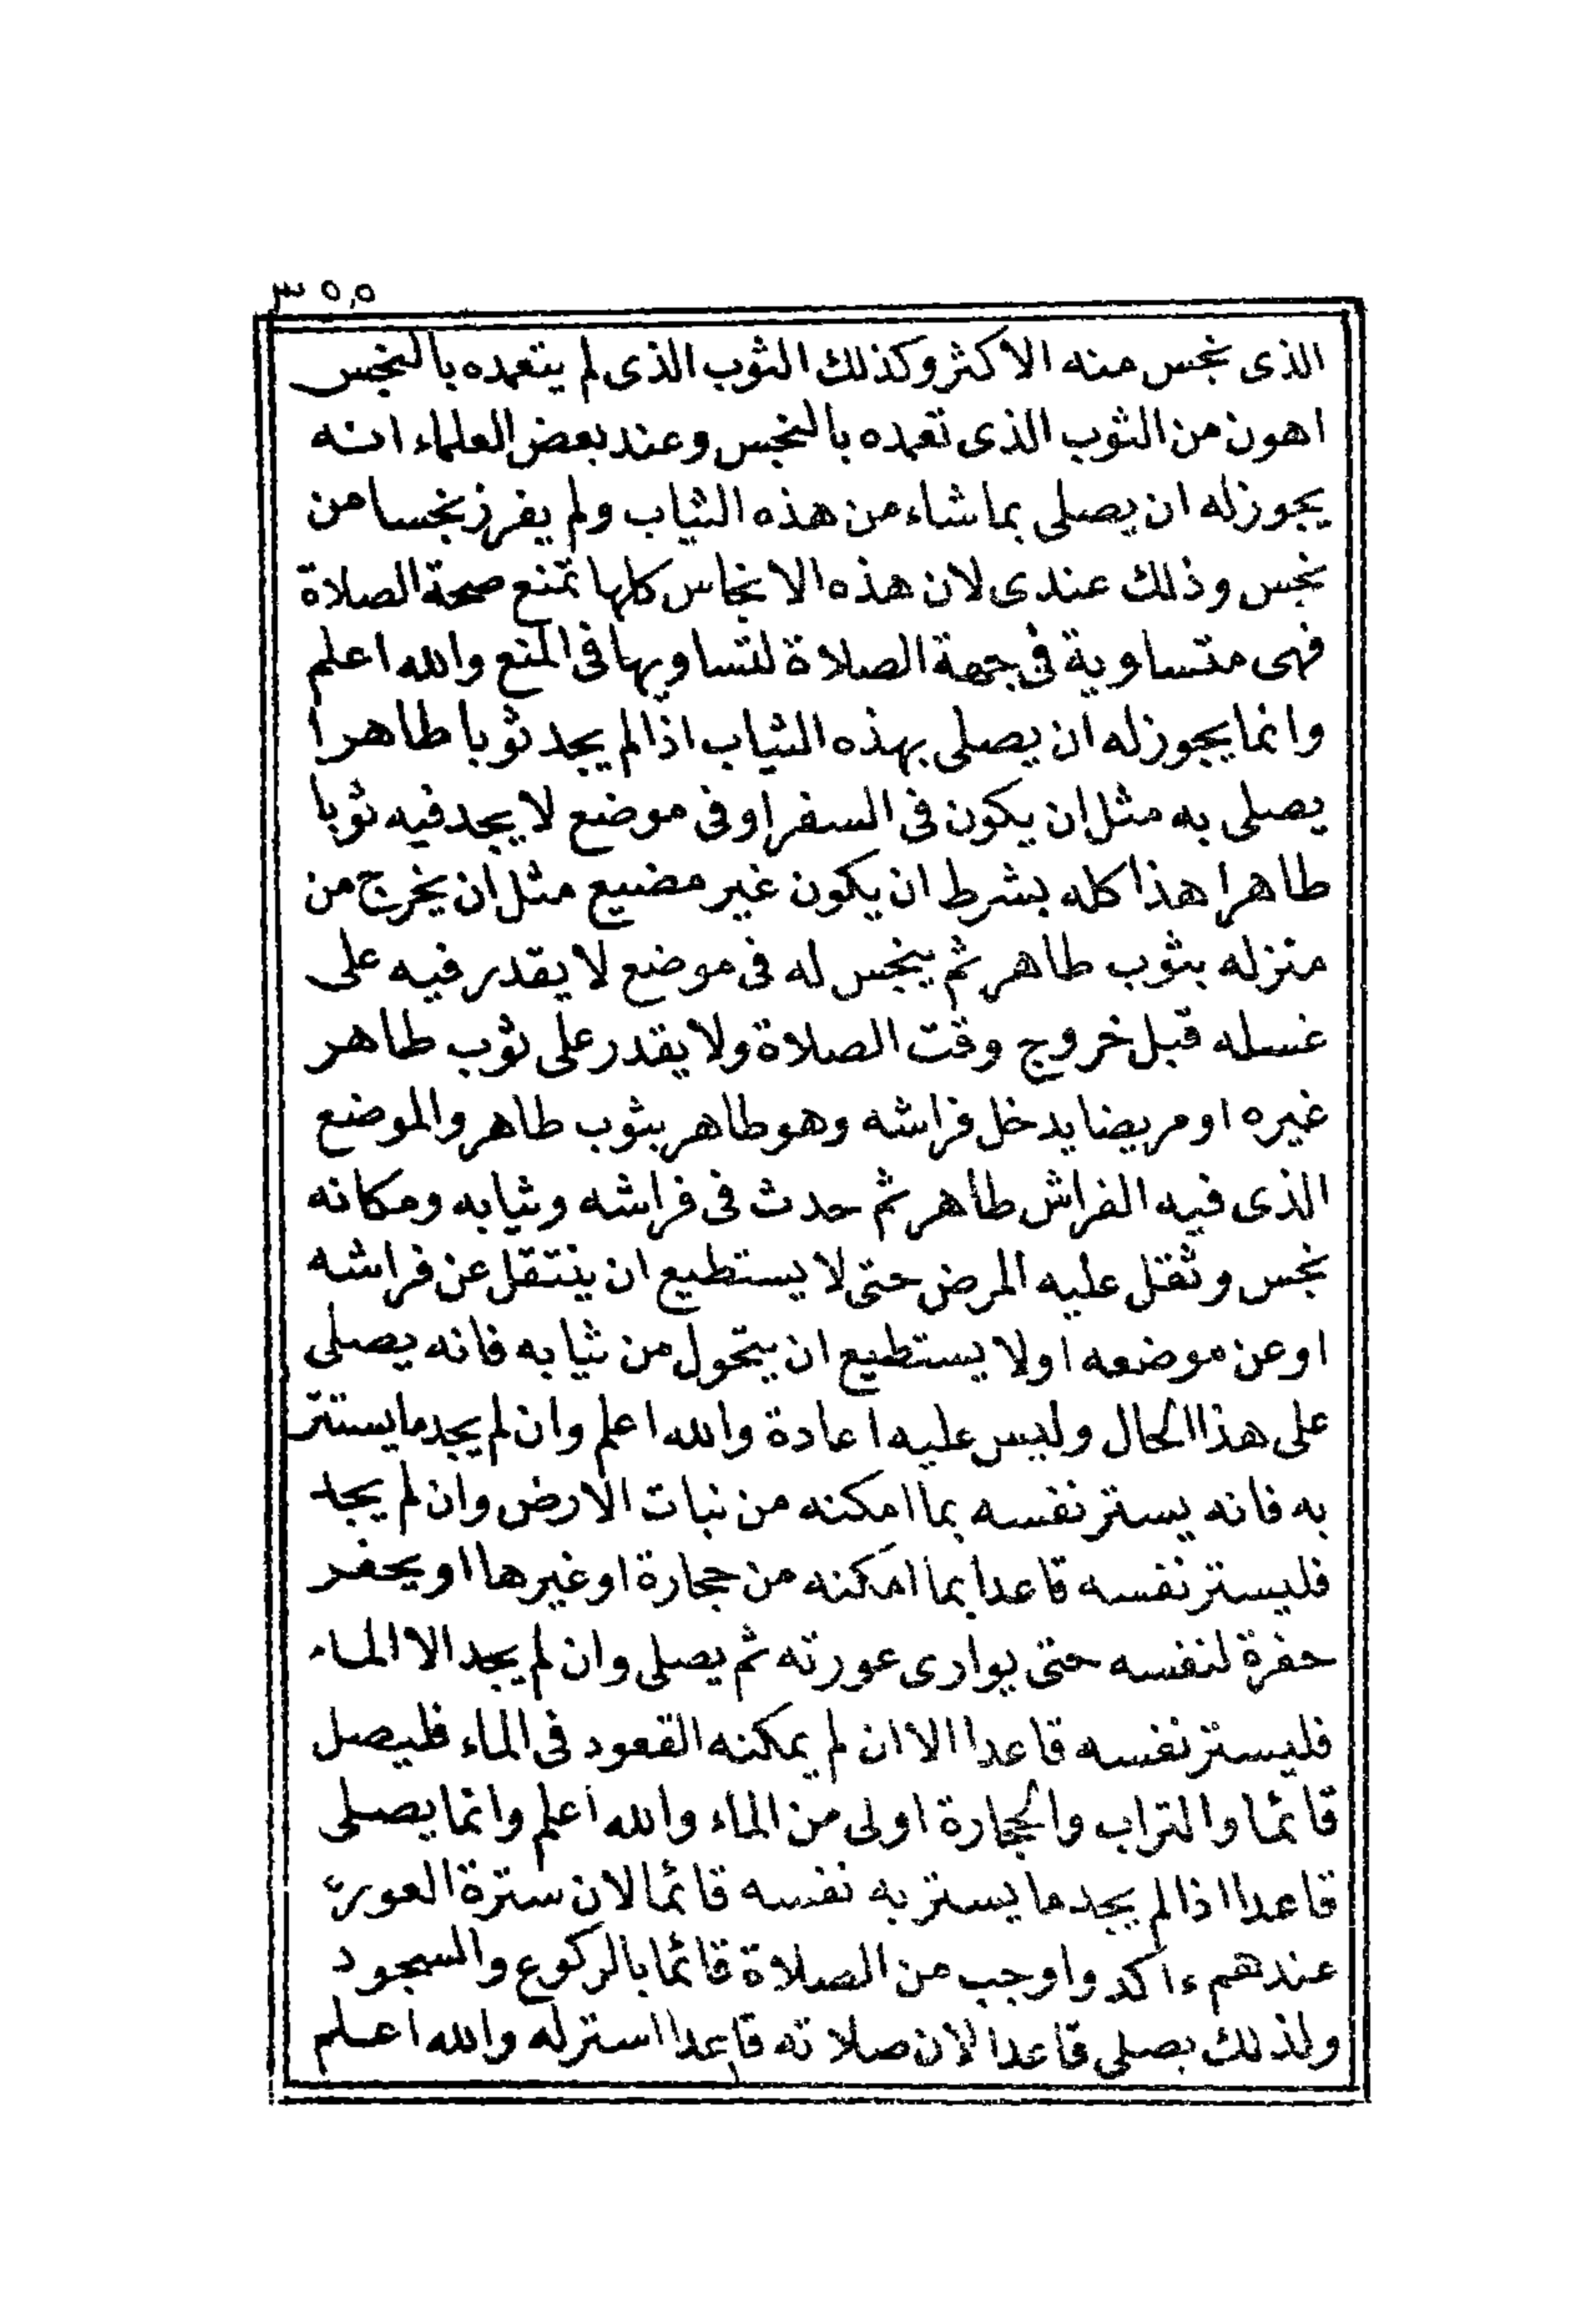 ٣٥٥
الذى نجس منه الاكثر وكذلك الثوب الذى لم يتعمده بالنجس
اهون من الثوب الذى تعمده بالنجس وعند بعض العلماء انه
يجوز له ان يصلى بما شاء من هذه الثياب ولم يفرز نجسا من
نجس وذلك عندى لان هذه الانجاس كلها تمنع صحة الصلاة
فهى متساوية فى جهة الصلاة لتساويها فى المنع والله اعلم
وانما يجوز له ان يصلى بهذه الثياب اذا لم يجد ثوبا طاهرا
يصلى به مثل ان يكون فى السفر او فى موضع لا يجد فيه ثوبا
طاهرا هذا كله بشرط ان يكون غير مضيع مثل ان يخرج من
منزله بثوب طاهر ثم ينجس له فى موضع لا يقدر فيه على
غسله قبل خروج وقت الصلاة ولا يقدر على ثوب طاهر
غيره او مريضا يدخل فراشه وهو طاهر بثوب طاهر والموضع
الذى فيه الفراش طاهر ثم حدث فى فراشه وثيابه ومكانه
نجس وثقل عليه المرض حتى لا يستطيع ان ينتقل عن فراشه
او عن موضعه اولا يستطيع ان يتحول من ثيابه فانه يصلى
على هذا الحال وليس عليه اعادة والله اعلم وان لم يجد ما يستتر
به فانه يستر نفسه بما امكنه من نبات الارض وان لم يجد
فليستر نفسه قاعدا بما امكنه من حجارة او غيرها او يحفر
حفرة لنفسه حتى يوارى عورته ثم يصلى وان لم يجد الا الماء
فليستر نفسه قاعدا الا ان لم يمكنه القعود فى الماء فليصل
قائما والتراب والحجارة اولى من الماء والله اعلم وانما يصلى
قاعدا اذا لم يجد ما يستر به نفسه قائما لان سترة العورة
عندهم ءاكد واوجب من الصلاة قائما بالركوع والسجود
ولذلك يصلى قاعدا لان صلاته قاعدا استر له والله اعلم